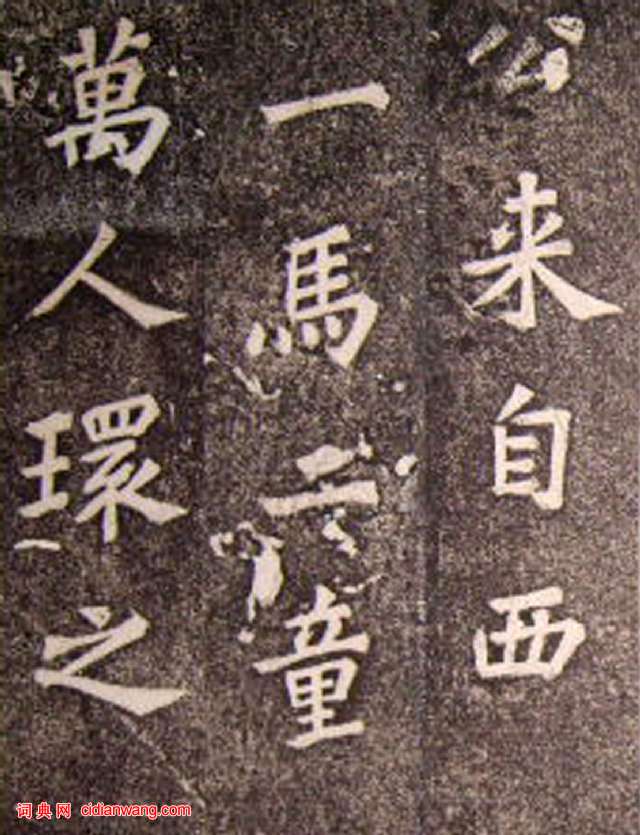 公来自西
一馬二童
萬人環之
词典网 cidianwang.com